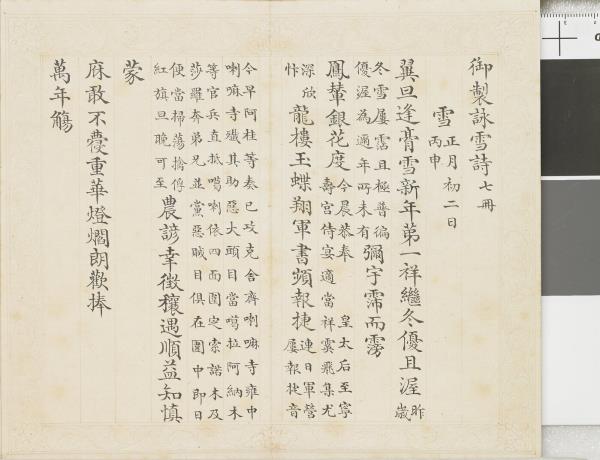 御製詠雪詩 七冊
雪 正月初二日 丙申
翼旦逢膏雪新年第一祥繼冬優且渥 昨歲
冬雪屢霑且極普徧 優渥為邇年所未有 彌宇霈而雱
鳳輦銀花度 今晨恭奉 皇太后至寧 壽宮侍宴適當祥霙飛集尤
深欣忭 龍樓玉蝶翔軍書頻報捷 連日軍營 屢報捷音
今早阿桂等奏已攻克舍齊喇嘛寺雍中
喇嘛寺殲其助惡大頭目當噶拉阿納木
等官兵直抵噶喇依四面圍定索諾木及
莎羅奔弟兄並黨惡賊目俱在圍中即日
便當掃蕩擒俘 紅旗旦晚可至 農諺幸徵穰遇順益知慎
蒙
庥敢不戁重華燈爓朗歡捧
萬年觴